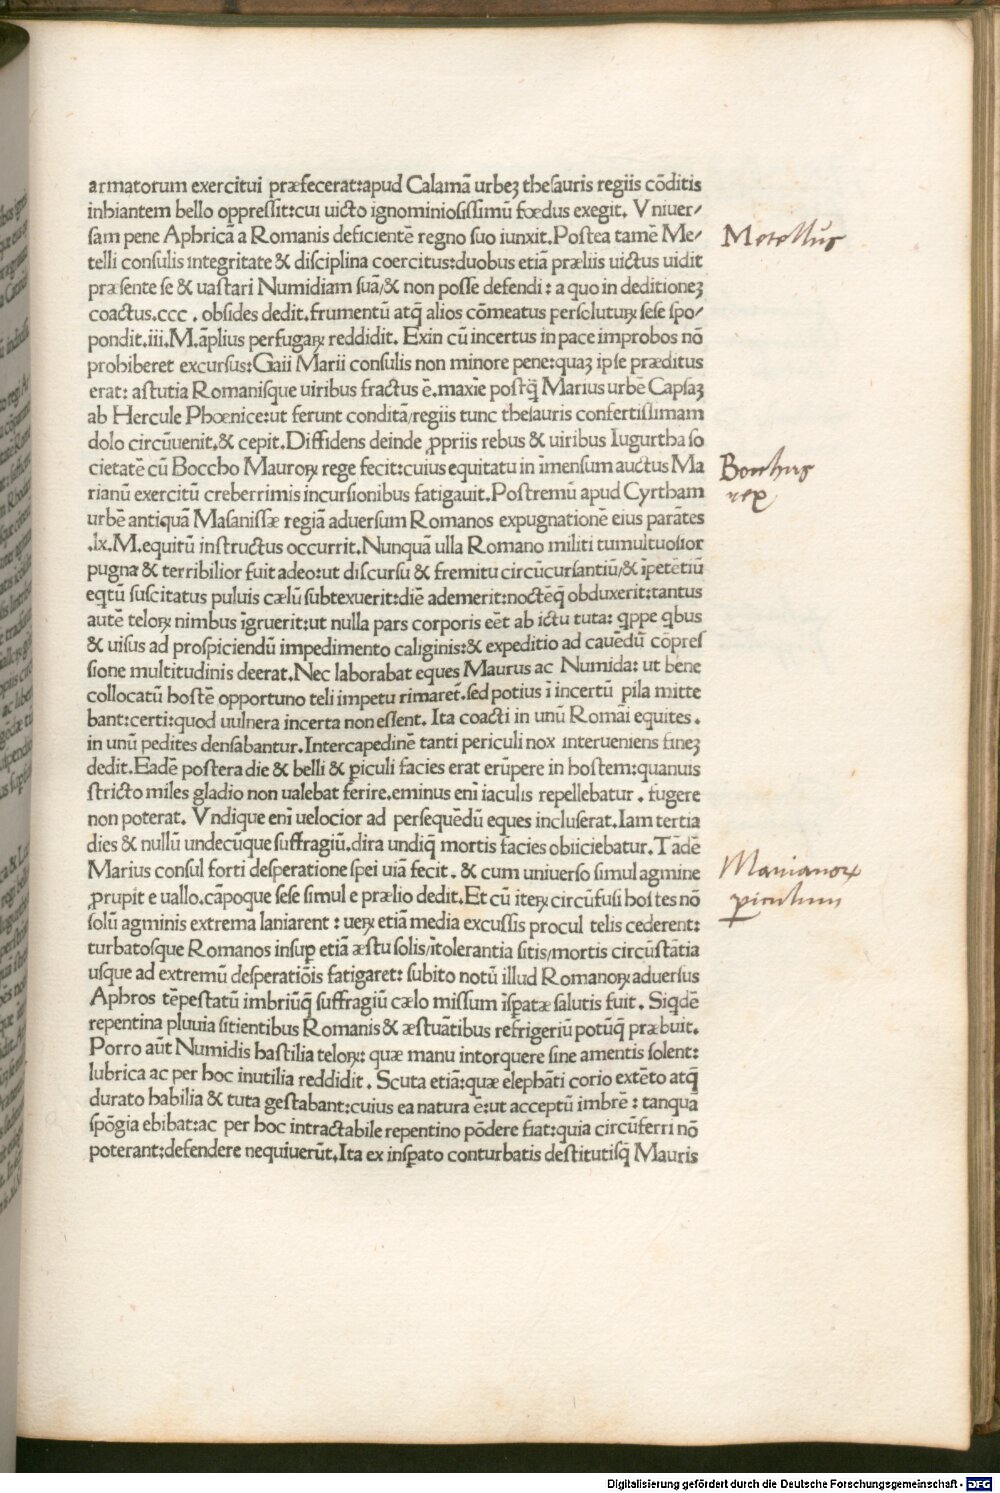 armatorum exercitui præfecerat:apud Calamā urbeꝫ thesauris regiis cōditis
inhiantem bello oppressit:cui uicto ignominiosissimū fœdus exegit. Vniuer/
sam pene Aphricā a Romanis deficientē regno suo iunxit.Postea tamē Me/
telli consulis integritate & disciplina coercitus:duobus etiā præliis uictus uidit
præsente se & uastari Numidiam suā/& non posse defendi: a quo in deditioneꝫ
coactus.ccc. obsides dedit.frumentū atq̄ alios cōmeatus persoluturꝝ sese spo/
pondit.iii.M.āplius perfugaꝝ reddidit. Exin cū incertus in pace improbos nō
prohiberet excursus:Gaii Marii consulis non minore pene:quaꝫ ipse præditus
erat: astutia Romanisque uiribus fractus ē.maxīe postq̄ Marius urbē Capsaꝫ
ab Hercule Phœnice:ut ferunt conditā/regiis tunc thesauris confertissimam
dolo circūuenit.& cepit.Diffidens deinde ꝓpriis rebus & uiribus Iugurtha so
cietatē cū Boccho Mauroꝝ rege fecit:cuius equitatu in īmensum auctus Ma
rianū exercitū creberrimis incursionibus fatigauit.Postremū apud Cyrtham
urbē antiquā Masanissæ regiā aduersum Romanos expugnationē eius parātes
.lx.M.equitū instructus occurrit.Nunquā ulla Romano militi tumultuosior
pugna & terribilior fuit adeo:ut discursu & fremitu circūcursantiū/& īpetētiū
eqtū suscitatus puluis cælū subtexuerit:diē ademerit:noctēq̄ obduxerit:tantus
autē teloꝝ nimbus īgruerit:ut nulla pars corporis eēt ab ictu tuta: qppe qbus
& uisus ad prospiciendū impedimento caliginis:& expeditio ad cauēdū cōpres
sione multitudinis deerat.Nec laborabat eques Maurus ac Numida: ut bene
collocatū hostē opportuno teli impetu rimaret̄.sed potius ī incertū pila mitte
bant:certi:quod uulnera incerta non essent. Ita coacti in unū Romāi equites.
in unū pedites densabantur.Intercapedinē tanti periculi nox interueniens fineꝫ
dedit.Eadē postera die & belli & ꝑiculi facies erat erūpere in hostem:quanuis
stricto miles gladio non ualebat ferire.eminus eni iaculis repellebatur. fugere
non poterat. Vndique eni uelocior ad persequēdū eques incluserat.Iam tertia
dies & nullū undecūque suffragiū.dira undiq̄ mortis facies obiiciebatur.Tādē
Marius consul forti desperatione spei uiā fecit. & cum uniuerso simul agmine
ꝓrupit e uallo.cāpoque sese simul e prælio dedit.Et cū iteꝝ circūfusi hostes nō
solū agminis extrema laniarent: ueꝝ etiā media excussis procul telis cederent:
turbatosque Romanos insuꝑ etiā æstu solis/ītolerantia sitis/mortis circūstātia
usque ad extremū desperatiōis fatigaret: subito notū illud Romanoꝝ aduersus
Aphros tēpestatū imbriūq̄ suffragiū cælo missum īsꝑatæ salutis fuit. Siqdē
repentina pluuia sitientibus Romanis & æstuātibus refrigeriū potūq̄ præbuit.
Porro aūt Numidis hastilia teloꝝ: quæ manu intorquere sine amentis solent:
lubrica ac per hoc inutilia reddidit. Scuta etiā:quæ elephāti corio extēto atq̄
durato habilia & tuta gestabant:cuius ea natura ē:ut acceptū imbrē: tanqua
spōgia ebibat:ac per hoc intractabile repentino pōdere fiat:quia circūferri nō
poterant:defendere nequiuerūt.Ita ex insꝑato conturbatis destitutisq̄ Mauris
Metellus
Bocchus
rex
Marianoꝝ
ꝑiculum
Digitalisierung gefördert durch die Deutsche Forschungsgemeinschaft - DFG